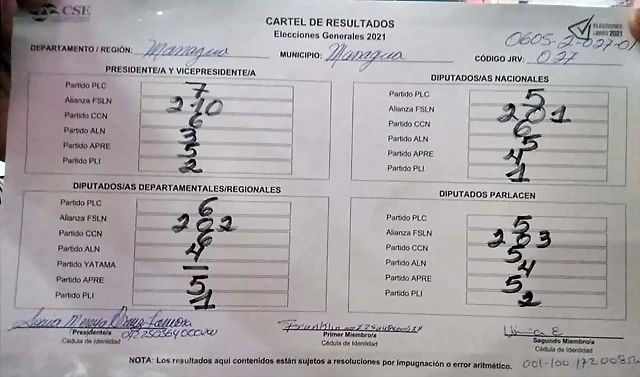 CSE
CARTEL DE RESULTADOS
Elecciones Generales 2021
ELECCIONES LIBRES 2021
0605-2-027-01
DEPARTAMENTO / REGIÓN: Managua MUNICIPIO: Managua CÓDIGO JRV: 027
PRESIDENTE/A Y VICEPRESIDENTE/A
Partido PLC 7
Alianza FSLN 210
Partido CCN 6
Partido ALN 3
Partido APRE 5
Partido PLI 2
DIPUTADOS/AS NACIONALES
Partido PLC 5
Alianza FSLN 201
Partido CCN 6
Partido ALN 5
Partido APRE 4
Partido PLI 1
DIPUTADOS/AS DEPARTAMENTALES/REGIONALES
Partido PLC 6
Alianza FSLN 202
Partido CCN 6
Partido ALN 4
Partido YATAMA —
Partido APRE 5
Partido PLI 1
DIPUTADOS PARLACEN
Partido PLC 5
Alianza FSLN 203
Partido CCN 5
Partido ALN 4
Partido APRE 5
Partido PLI 2
Presidente/a
Cédula de Identidad
Primer Miembro/a
Cédula de Identidad
Segundo Miembro/a
Cédula de Identidad
NOTA: Los resultados aquí contenidos están sujetos a resoluciones por impugnación o error aritmético.